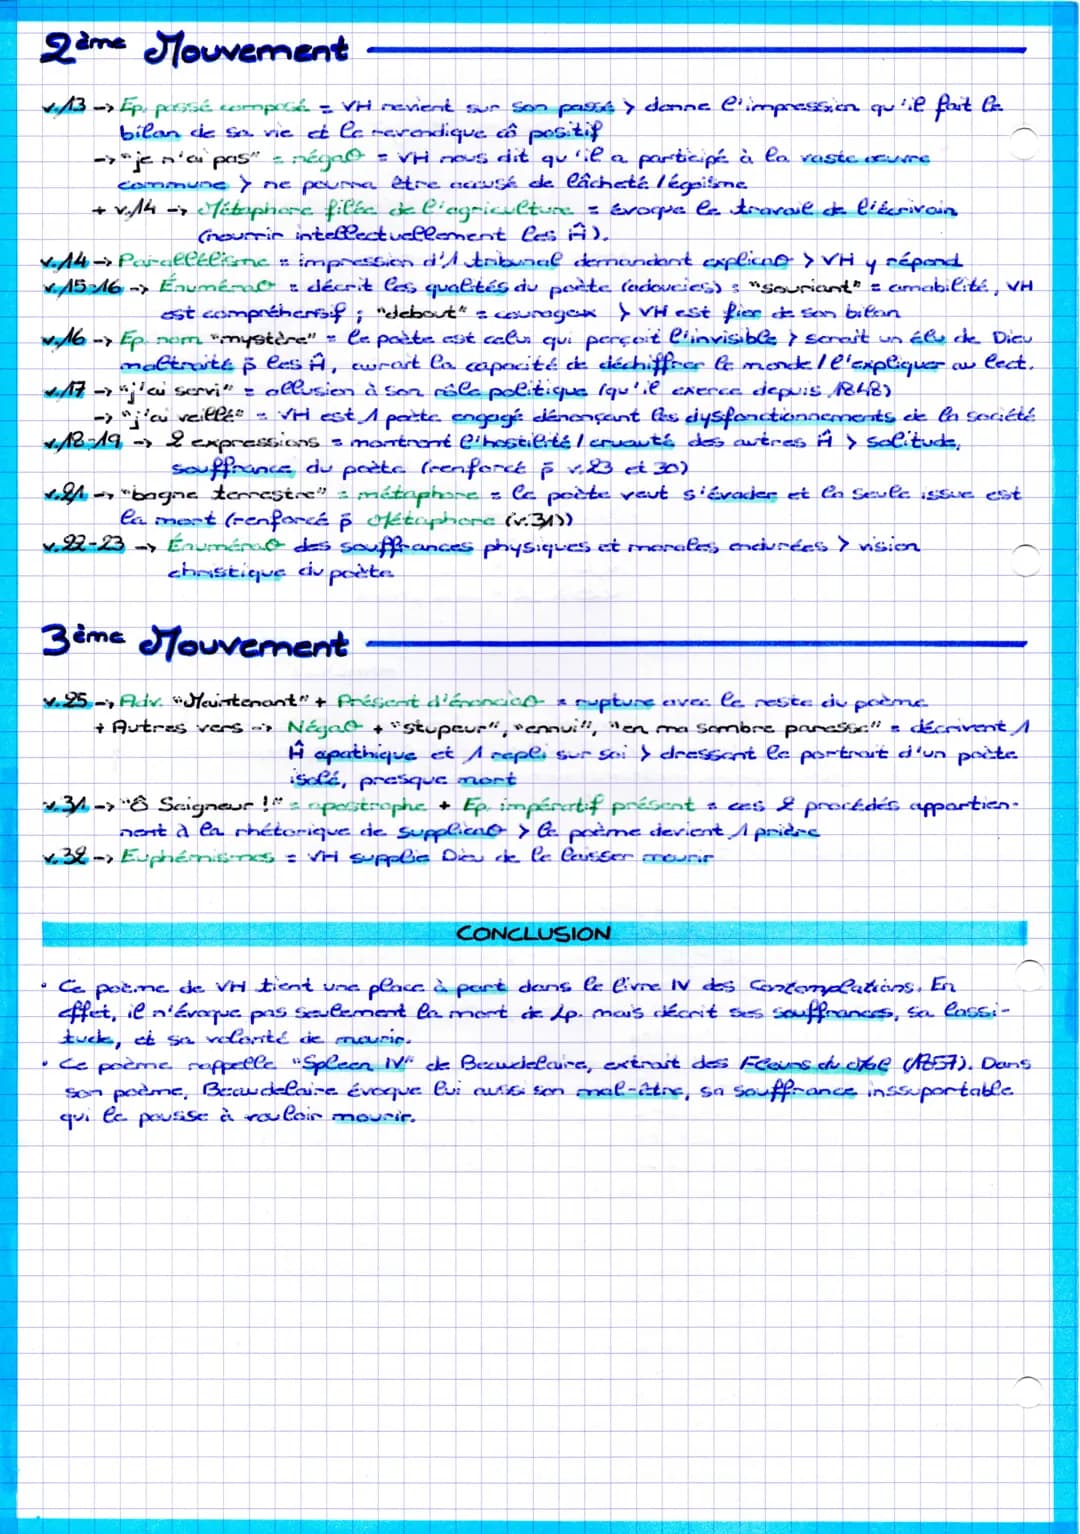 2ème Mouvement
v.13 -> Ep. passé composé = VH revient sur son passé > donne l'impression qu'il fait le
bilan de sa vie et le revendique cô positif
-> "je n'ai pas" = néga⊕ = VH nous dit qu'il a participé à la vaste œuvre
commune > ne pourra être accusé de lâcheté / égoïsme
+ v.14 -> Métaphore filée de l'agriculture = évoque le travail de l'écrivain
(nourrir intellectuellement les Ĥ).
v.14 -> Parallélisme = impression d'1 tribunal demandant explica⊕ > VH y répond
v.15-16 -> Énuméra⊕ = décrit les qualités du poète (adoucies) : "souriant" = amabilité, VH
est compréhensif ; "debout" = courageux > VH est fier de son bilan
v.16 -> Ep. nom "mystère" = le poète est celui qui perçoit l'invisible > serait un élu de Dieu
maltraité p̄ les Ĥ, aurait la capacité de déchiffrer le monde / l'expliquer au lect.
v.17 -> "j'ai servi" = allusion à son rôle politique (qu'il exerce depuis 1848)
-> "j'ai veillé" = VH est 1 poète engagé dénonçant les dysfonctionnements de la société
v.18-19 -> 2 expressions = montrent l'hostilité / cruauté des autres Ĥ > solitude,
souffrance du poète (renforcé p̄ v.23 et 30)
v.21 -> "bagne terrestre" = métaphore = le poète veut s'évader et la seule issue est
la mort (renforcé p̄ Métaphore (v.31))
v.22-23 -> Énuméra⊕ des souffrances physiques et morales endurées > vision
christique du poète
3ème Mouvement
v.25 -> Adv. "Maintenant" + Présent d'énoncia⊕ = rupture avec le reste du poème
+ Autres vers -> Néga⊕ + "stupeur", "ennui", "en ma sombre paresse" = décrivent 1
Ĥ apathique et 1 repli sur soi > dressent le portrait d'un poète
isolé, presque mort
v.31 -> "Ô Seigneur !" = apostrophe + Ep. impératif présent = ces 2 procédés appartien-
nent à la rhétorique de supplica⊕ > le poème devient 1 prière
v.32 -> Euphémismes = VH supplie Dieu de le laisser mourir
CONCLUSION
• Ce poème de VH tient une place à part dans le livre IV des Contemplations. En
effet, il n'évoque pas seulement la mort de Lp. mais décrit ses souffrances, sa lassi-
tude, et sa volonté de mourir.
• Ce poème rappelle "Spleen IV" de Beaudelaire, extrait des Fleurs du Mal (1857). Dans
son poème, Beaudelaire évoque lui aussi son mal-être, sa souffrance inssuportable
qui le pousse à vouloir mourir.